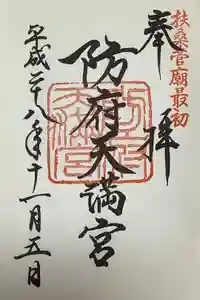 扶桑菅廟最初
奉拝
防府天満宮
平成二十八年十一月五日